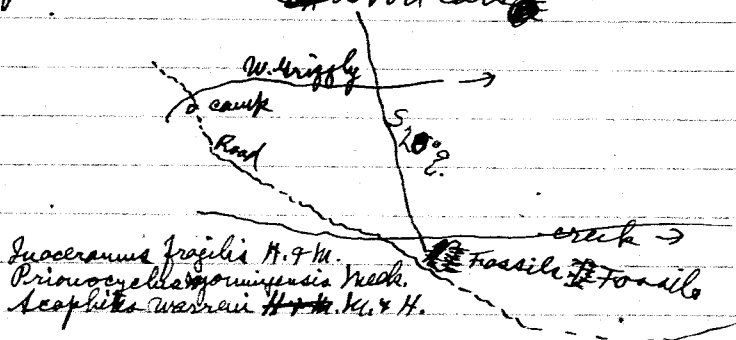 W. Grizzly
camp
S 20° E.
Road
creek
Fossils Fossils
Inoceramus fragilis H. & M.
Prionocyclus wyomingensis Meek.
Scaphites warreni M. & H.